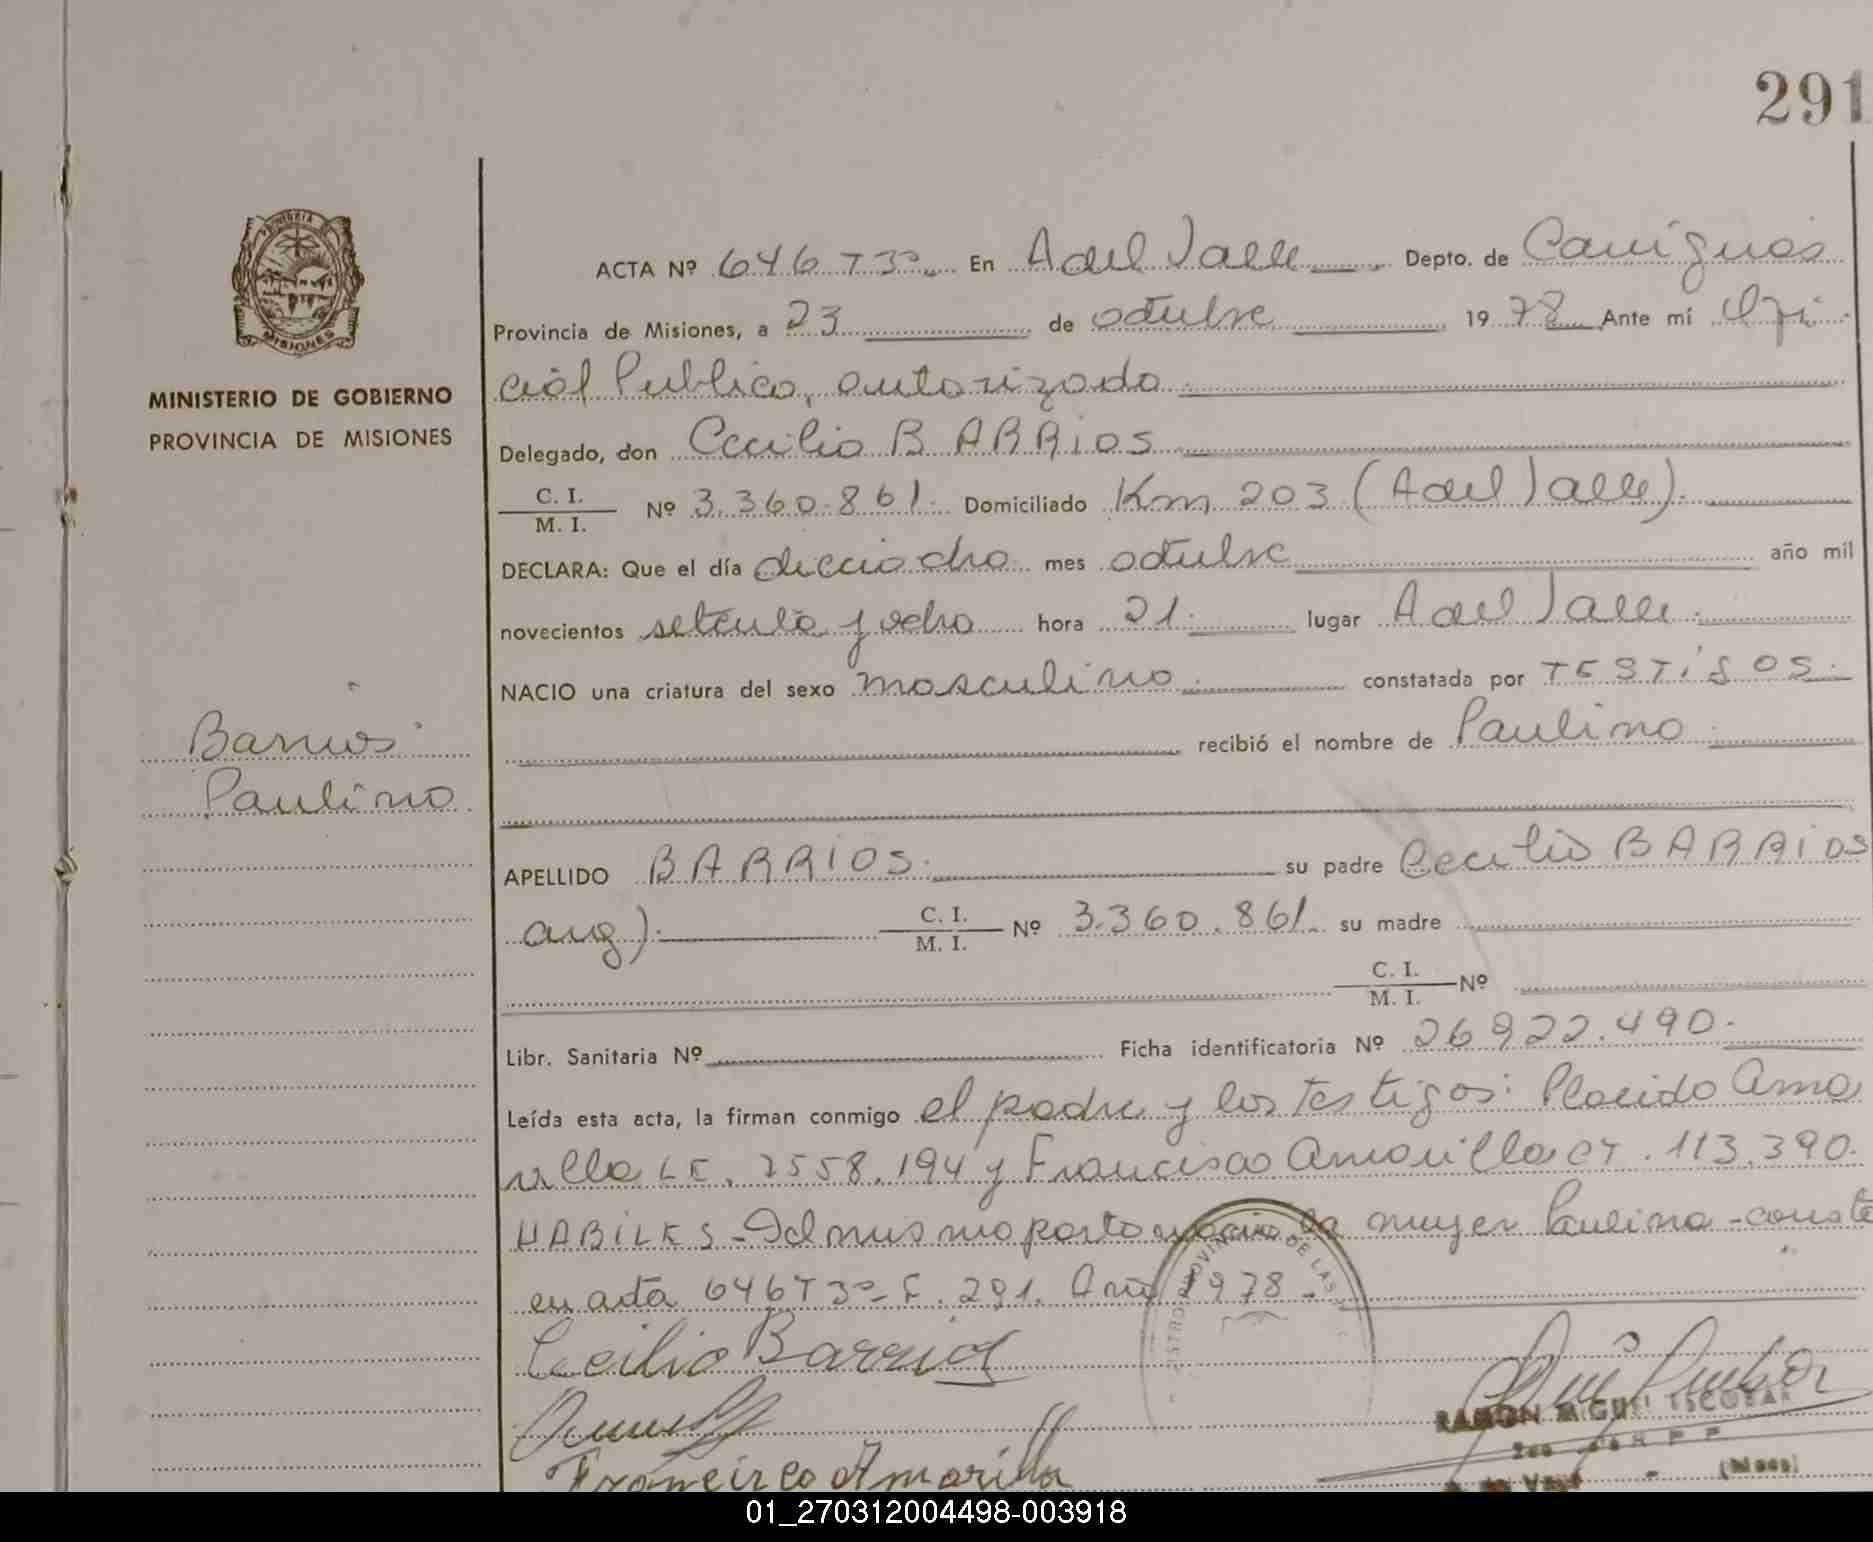 291
MISIONES
MINISTERIO DE GOBIERNO
PROVINCIA DE MISIONES
Barrios
Paulino
ACTA Nº 646 T 3º En A del Valle Depto. de Cainguás
Provincia de Misiones, a 23 de octubre 1978 Ante mí Ofi
cial Publico, autorizado
Delegado, don Cecilio BARRIOS
C. I.
M. I. Nº 3.360.861. Domiciliado Km, 203 (A del Valle).
DECLARA: Que el día dieciocho mes octubre año mil
novecientos setenta y ocho hora 21. lugar A del Valle.
NACIO una criatura del sexo masculino. constatada por TESTIGOS.
recibió el nombre de Paulino
APELLIDO BARRIOS. su padre Cecilio BARRIOS
arg). C. I.
M. I. Nº 3.360.861. su madre
C. I.
M. I. Nº
Libr. Sanitaria Nº Ficha identificatoria Nº 26922.490.
Leída esta acta, la firman conmigo el padre y los testigos: Placido Ama
rilla LE. 7558.194 y Francisco Amarilla CI. 113.390.
HABILES - Del mismo parto nacio la mujer Paulina - consta
en acta 646 T 3º F. 291. Año 1978.
Cecilio Barrios
Francisco Amarilla
RAMON MIGUEL ESCOBAR
(Mnes)
01_270312004498-003918